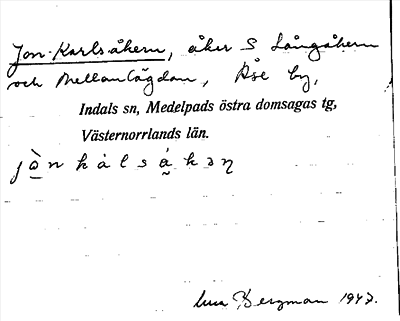 Jon-Karlsåkern, åker S Långåkern
och Mellanlägdan, Åse by,
Indals sn, Medelpads östra domsagas tg,
Västernorrlands län.
jò̲n kálsá̰kəɳ
Bergman 1947.